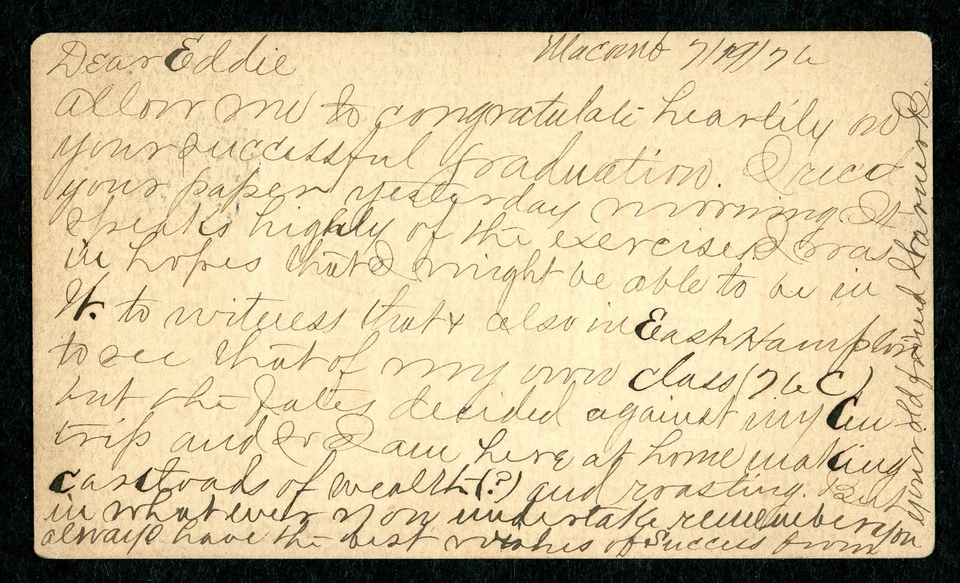 Macomb 7/19/76
Dear Eddie
allow me to congratulate heartily on
your successful graduation. I recd
your paper yesterday morning It
speaks highly of the exercises. I was
in hopes that I might be able to be in
N. to witness that & also in EastHampton
to see that of my own class (76 C)
but the fates decided against my Cen
trip and so I am here at home making
cartloads of wealth (?) and roasting. But
in whatever you undertake remember you
always have the best wishes of Success from
your old friend